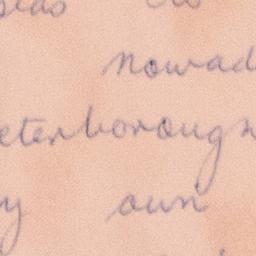 nowad
eterboroug
y own